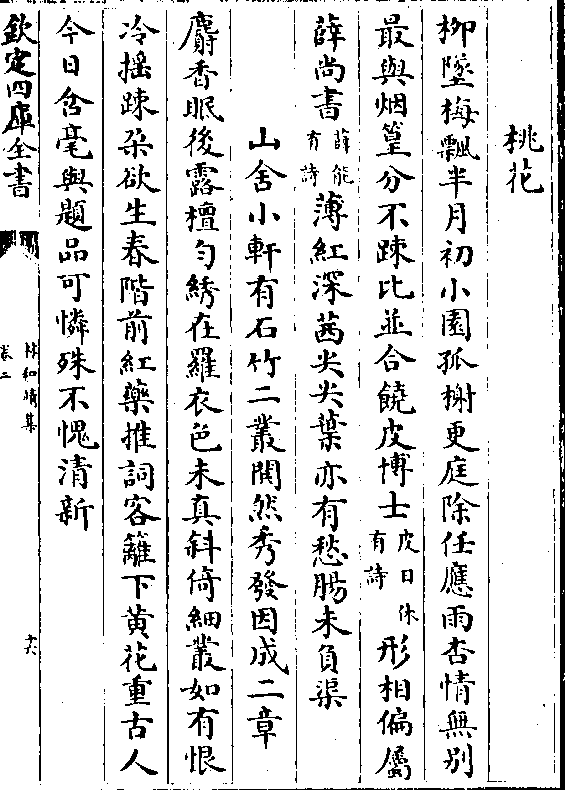 桃花
柳墜梅飄半月初小園孤榭更庭除任應雨杏情無別
最與烟篁分不踈比並合饒皮博士皮日休有詩形相偏屬
薛尚書薛能有詩薄紅深茜尖尖葉亦有愁腸未負渠
山舍小軒有石竹二叢閧然秀發因成二章
麝香眠後露檀勻綉在羅衣色未真斜倚細叢如有恨
冷摇踈朶欲生春階前紅藥推詞客籬下黄花重古人
今日含毫與題品可憐殊不愧清新
欽定四庫全書
林和靖集
卷二
十六